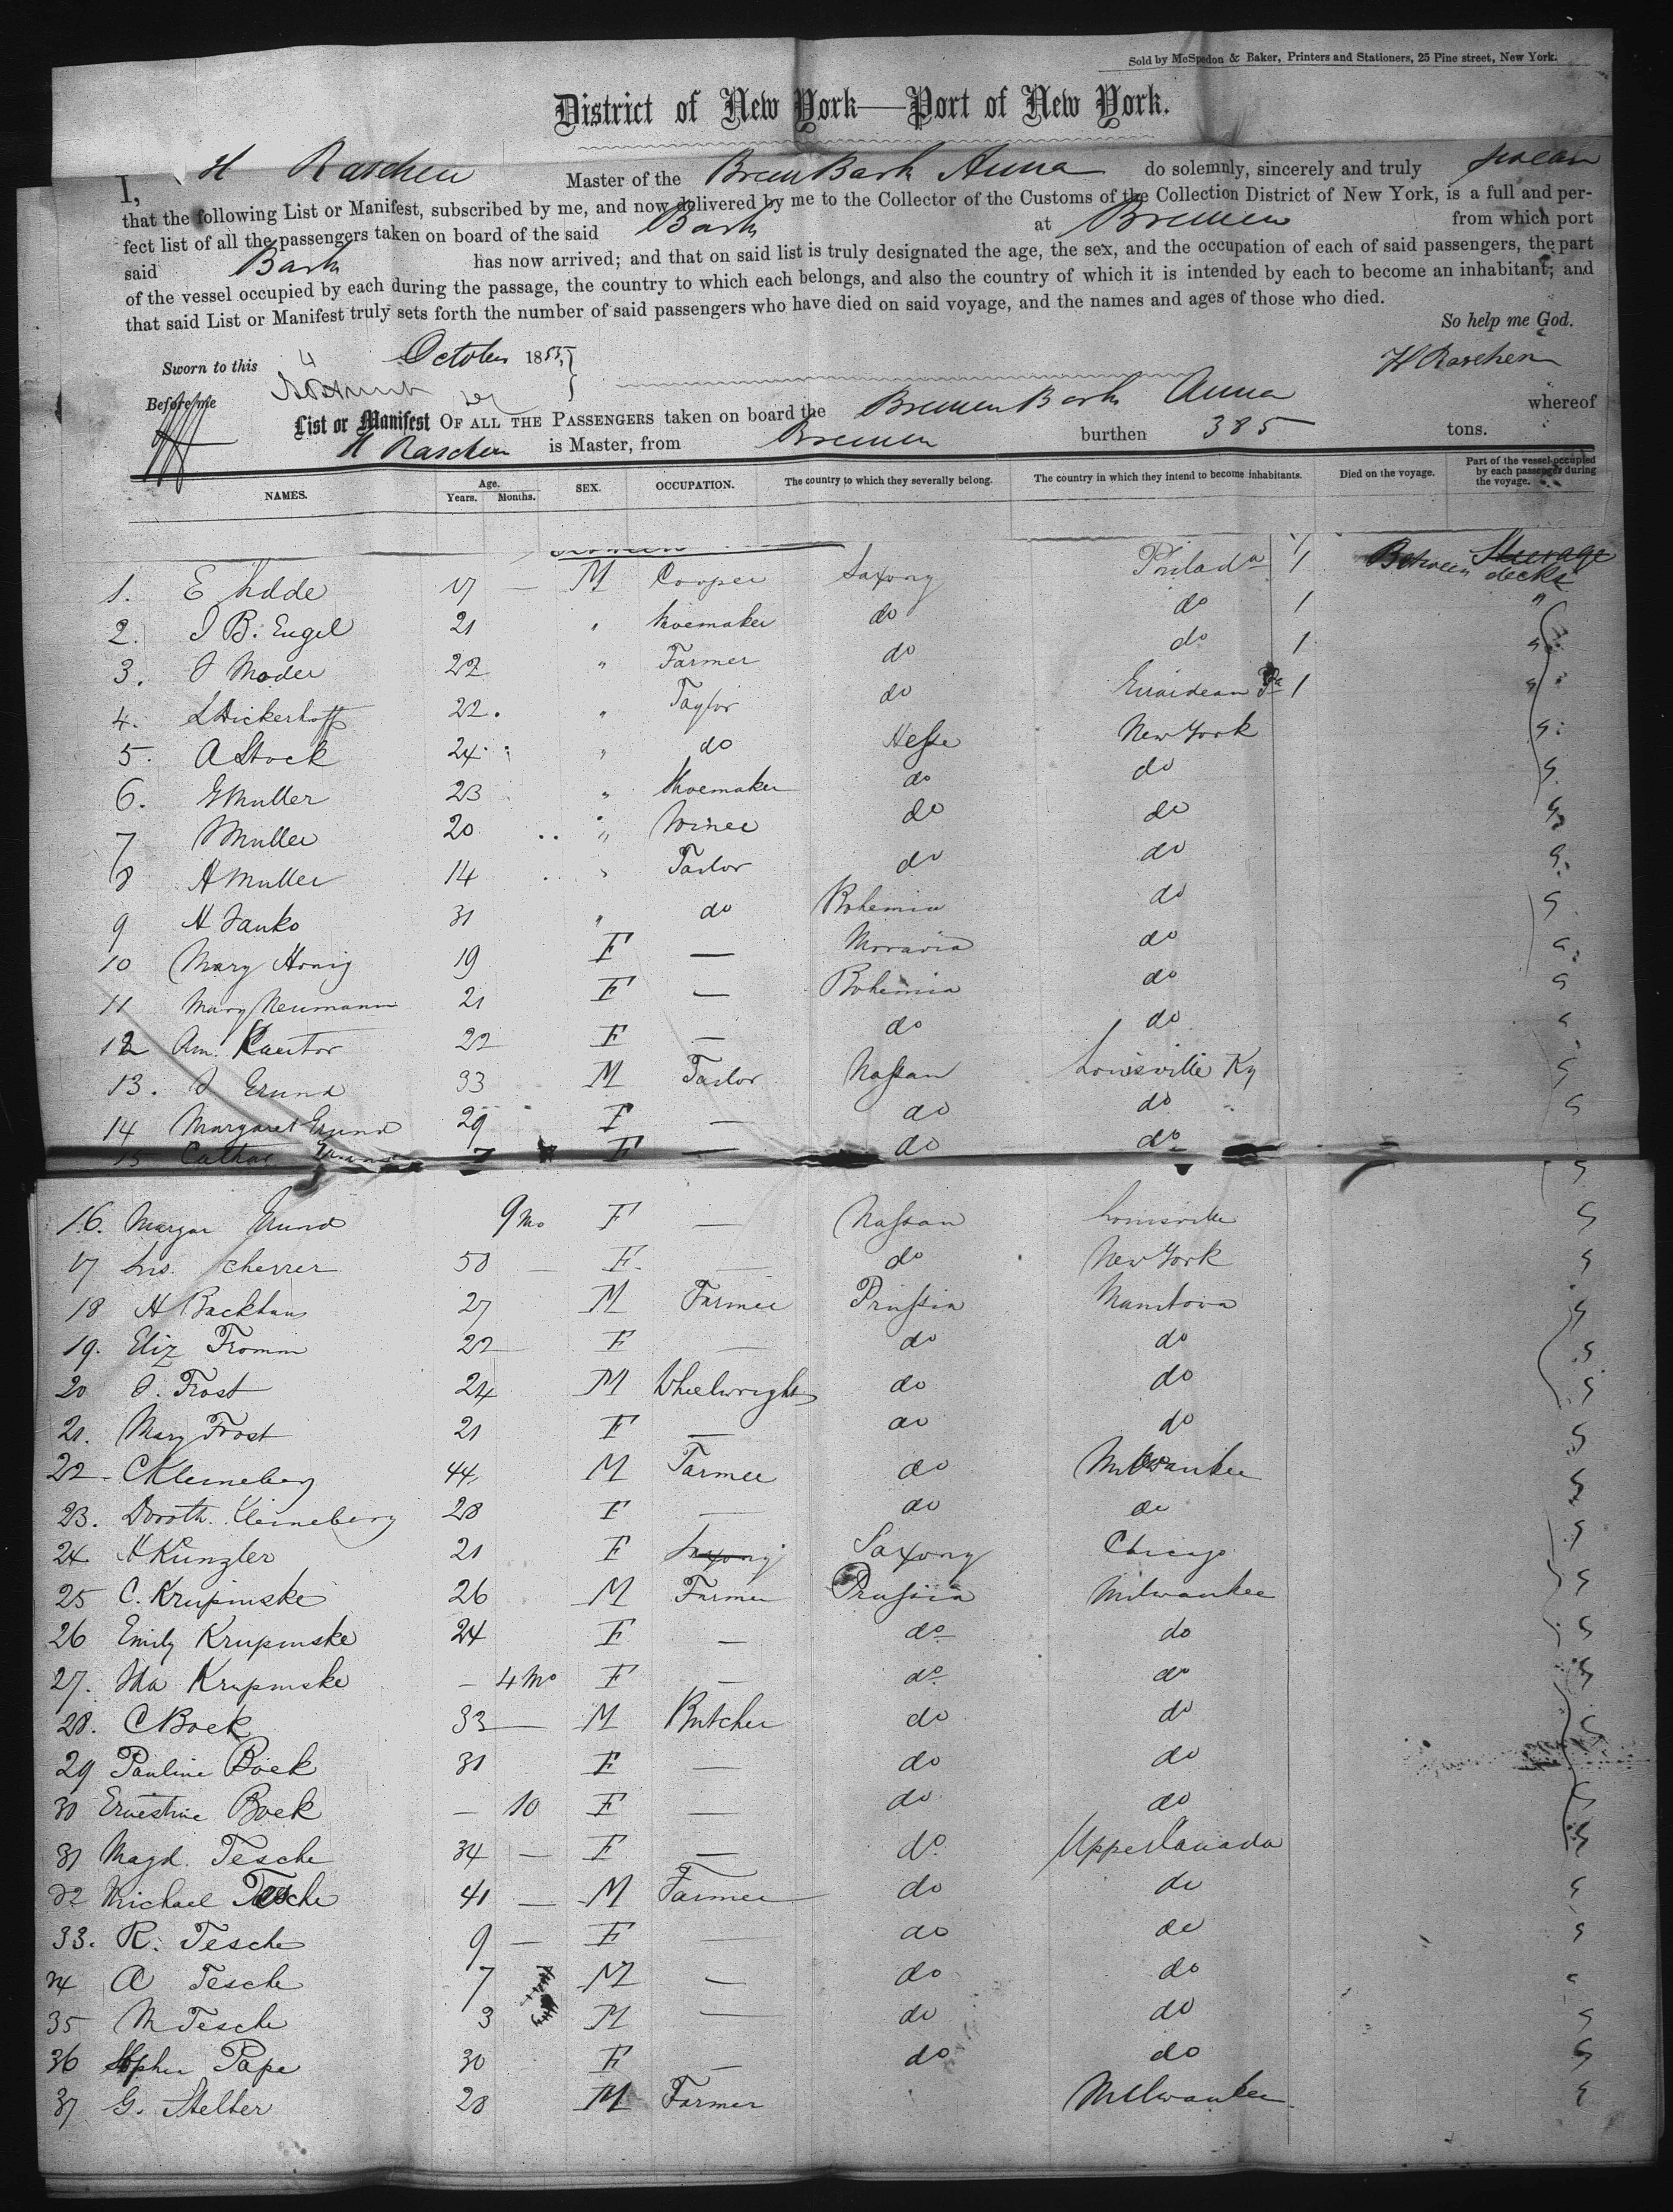 Sold by McSpedon & Baker, Printers and Stationers, 25 Pine street, New York.
District of New York—Port of New York.
I, H Raschen Master of the Brem Bark Anna do solemnly, sincerely and truly swear
that the following List or Manifest, subscribed by me, and now delivered by me to the Collector of the Customs of the Collection District of New York, is a full and per-
fect list of all the passengers taken on board of the said Bark at Bremen from which port
said Bark has now arrived; and that on said list is truly designated the age, the sex, and the occupation of each of said passengers, the part
of the vessel occupied by each during the passage, the country to which each belongs, and also the country of which it is intended by each to become an inhabitant; and
that said List or Manifest truly sets forth the number of said passengers who have died on said voyage, and the names and ages of those who died.
So help me God.
Sworn to this 4 October 1855,
H Raschen
Before me
List or Manifest OF ALL THE PASSENGERS taken on board the Bremen Bark Anna whereof
H Raschen is Master, from Bremen burthen 385 tons.
NAMES. Age. Years. Months. SEX. OCCUPATION. The country to which they severally belong. The country in which they intend to become inhabitants. Died on the voyage. Part of the vessel occupied by each passenger during the voyage.
1. E 17 — M Cooper Saxony Philada 1 Between Steerage decks
2. J B. Engel 21 " Shoemaker do do 1 "
3. J Moder 22 " Farmer do do 1 "
4. L Dickerhoff 22. " Taylor do Pa 1 "
5. A Stock 24 " do Hesse New York
6. G Muller 23 " Shoemaker do do
7 J Muller 20 " do do
8 A Muller 14 " Tailor do do
9 H Janko 31 " do Bohemia do
10 Mary Honig 19 F — Moravia do
11 Mary Neumann 21 F — Bohemia do
12 Am. Kantor 22 F — do do
13. J Grund 33 M Tailor Nassau Louisville Ky
14 Margaret Grund 29 F — do do
15 Cathae Grund 7 F — do do
16. Margar Grund 9 Mo F — Nassau Louisville
17 Scherrer 50 — F. — do New York
18 H Backhaus 27 M Farmer Prussia Manitowa
19. Eliz Fromm 22 F — do do
20 J. Frost 24 M Wheelwright do do
21. Mary Frost 21 F — do do
22 C Kleineberg 44 M Farmer do Milwaukee
23. Doroth. Kleineberg 28 F — do do
24 H Kunzler 21 F Saxony Saxony Chicago
25 C. Krupinske 26 M Farmer Prussia Milwaukee
26 Emily Krupinske 24 F — do do
27. Ida Krupinske — 4 Mo F — do do
28. C Boek 33 — M Butcher do do
29 Pauline Boek 31 F — do do
30 Ernestine Boek — 10 F — do do
31 Magd. Tesche 34 — F — do Upper Canada
32 Michael Tesche 41 — M Farmer do do
33. R. Tesche 9 — F — do do
34 A Tesche 7 M — do do
35 M Tesche 3 M — do do
36 Sophia Pape 30 F — do do
37 G. Stelter 28 M Farmer Milwaukee